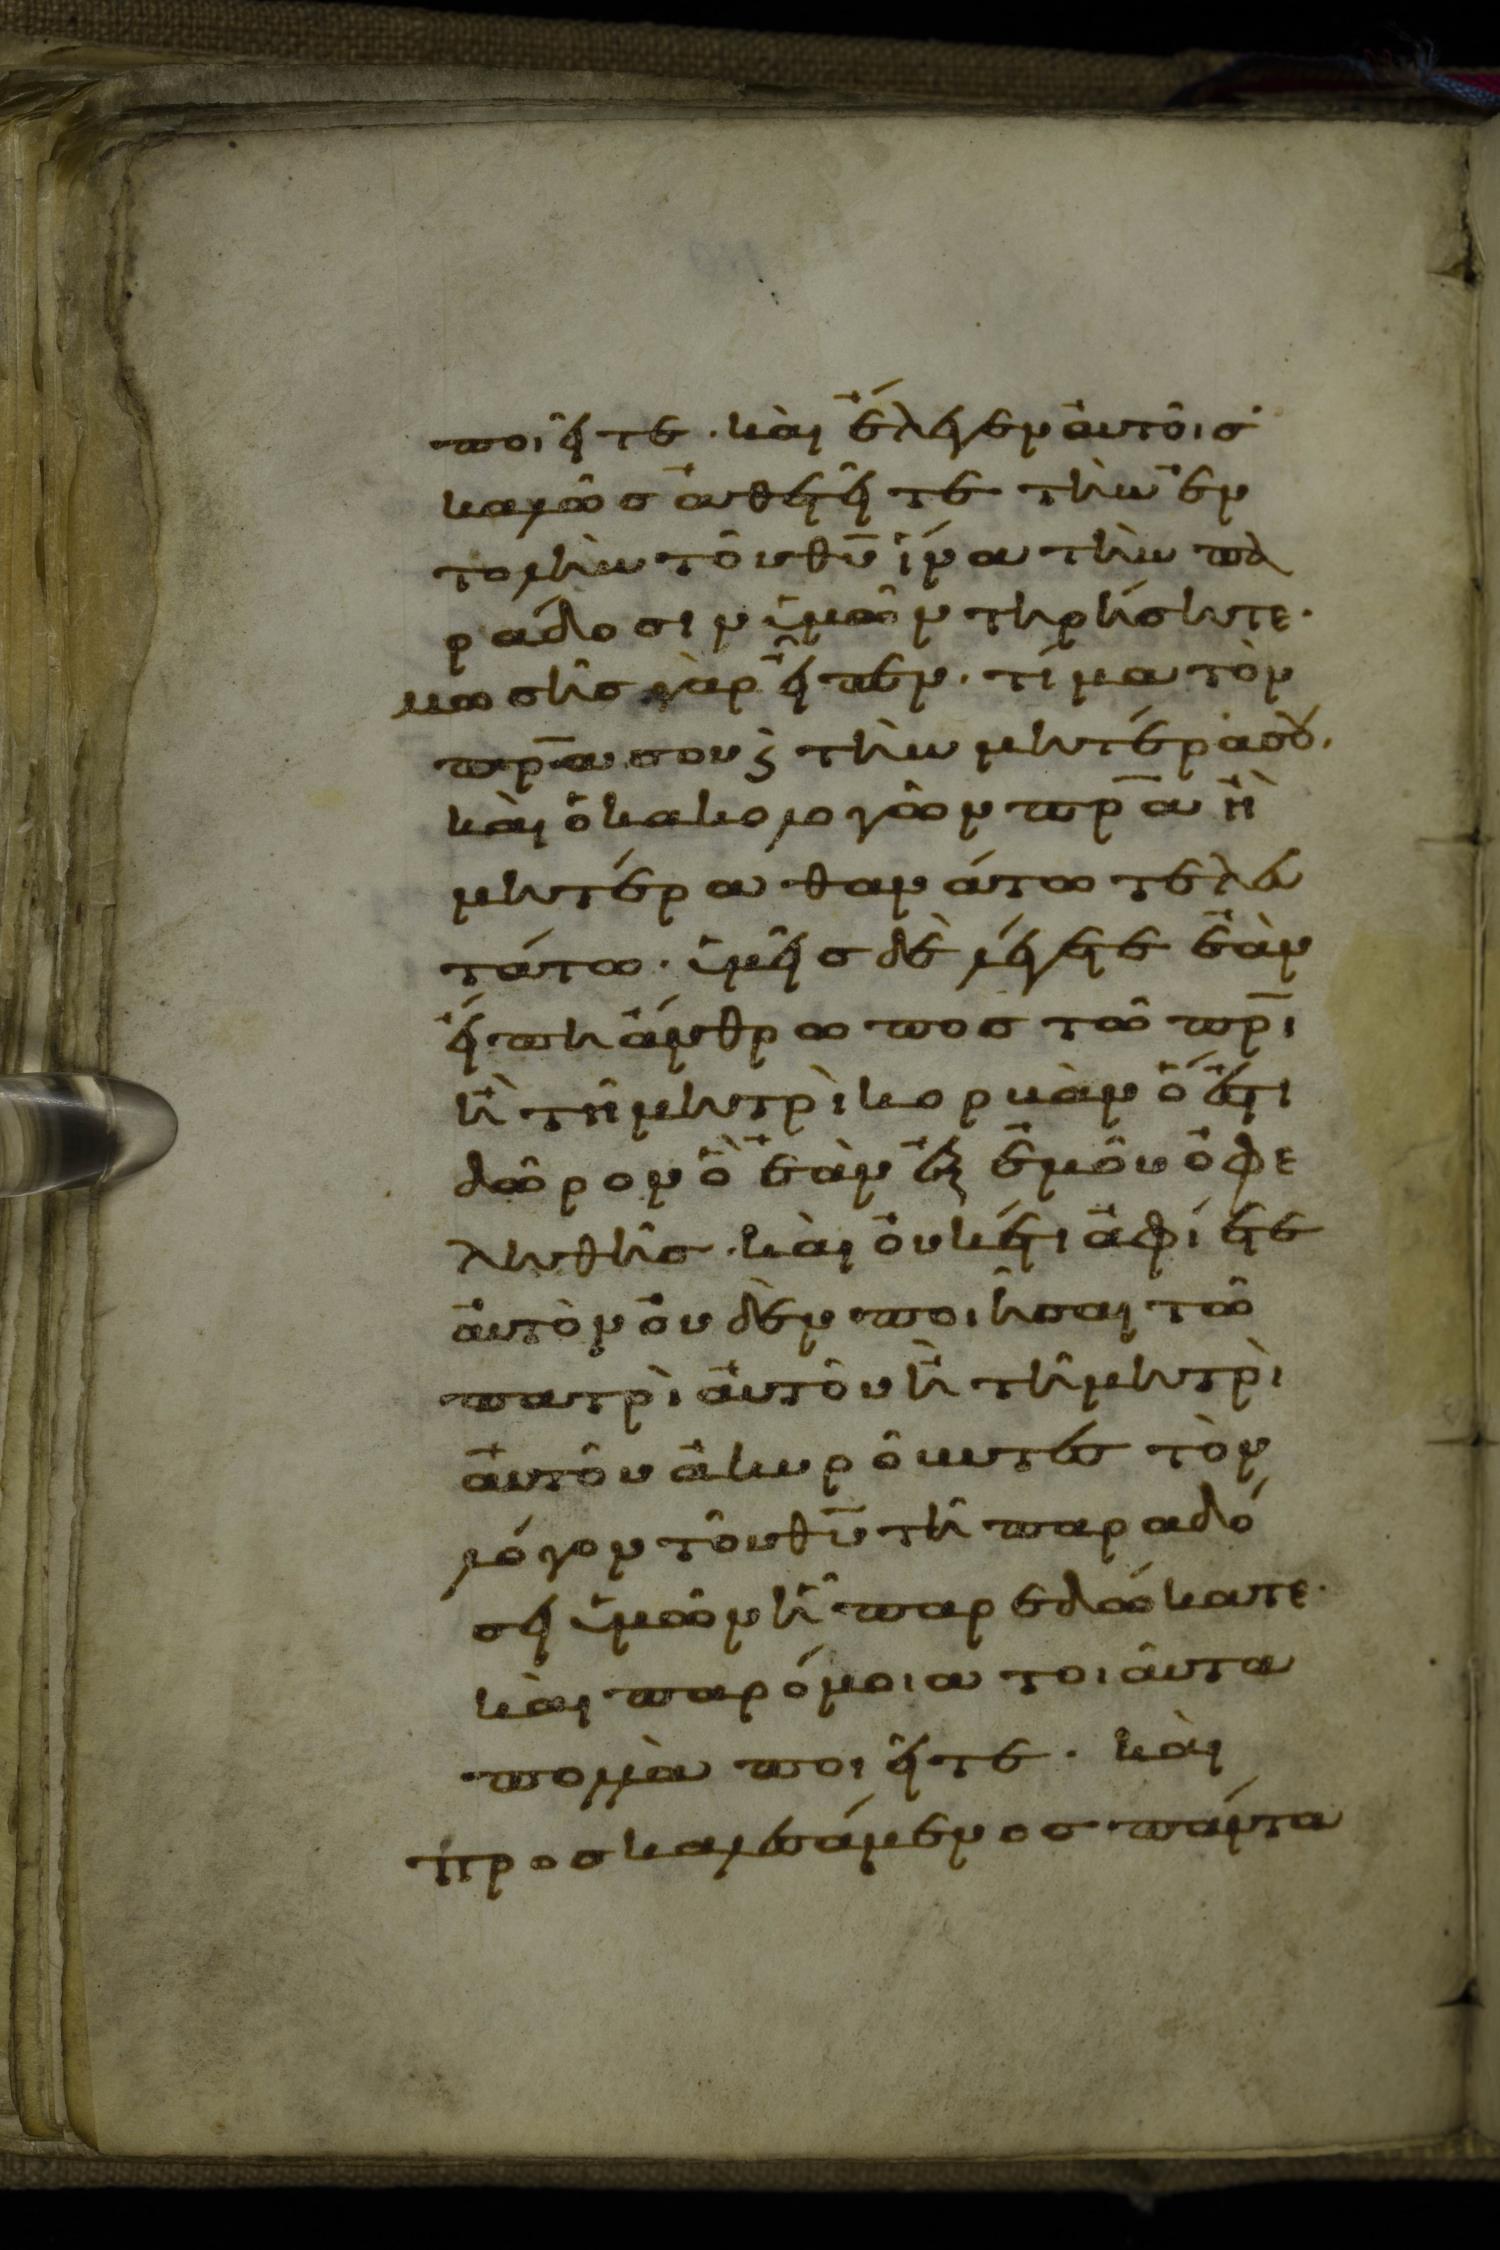 ποιεῖτε· καὶ ἔλεγεν αὐτοῖς·
καλῶς ἀθετεῖτε τὴν ἐν
τολὴν τοῦ θῡ ἵνα τὴν πα
ράδοσιν ὑμῶν τηρήσητε·
μωσῆς γὰρ εἶπεν· τίμα τὸν
πρ̅α σου ϗ τὴν μητέρα σοὺ·
καὶ ὁ κακολογῶν πρ̅α ἢ
μητέρα θανάτω τελευ
τάτω· ὑμεῖς δὲ λέγετε ἐὰν
εἴπη ἄνθρωπος τῶ πρ̅ι
ἢ τῆ μητρὶ κορβὰν ὅ ἐστι
δῶρον ὃ ἐὰν ἐξ ἐμοῦ ὀφε
ληθῆς· καὶ οὐκέτι ἀφίετε
αὐτὸν οὐδὲν ποιῆσαι τῶ
πατρὶ αὐτοῦ ἢ τῆ μητρὶ
αὐτοῦ ἀκυροῦντες τὸν
λόγον τοῦ θῡ τῆ παραδό
σει ὑμῶν ἧ παρεδώκατε·
καὶ παρόμοια τοιαῦτα
πολλὰ ποιεῖτε· καὶ
προσκαλεσάμενος πάντα